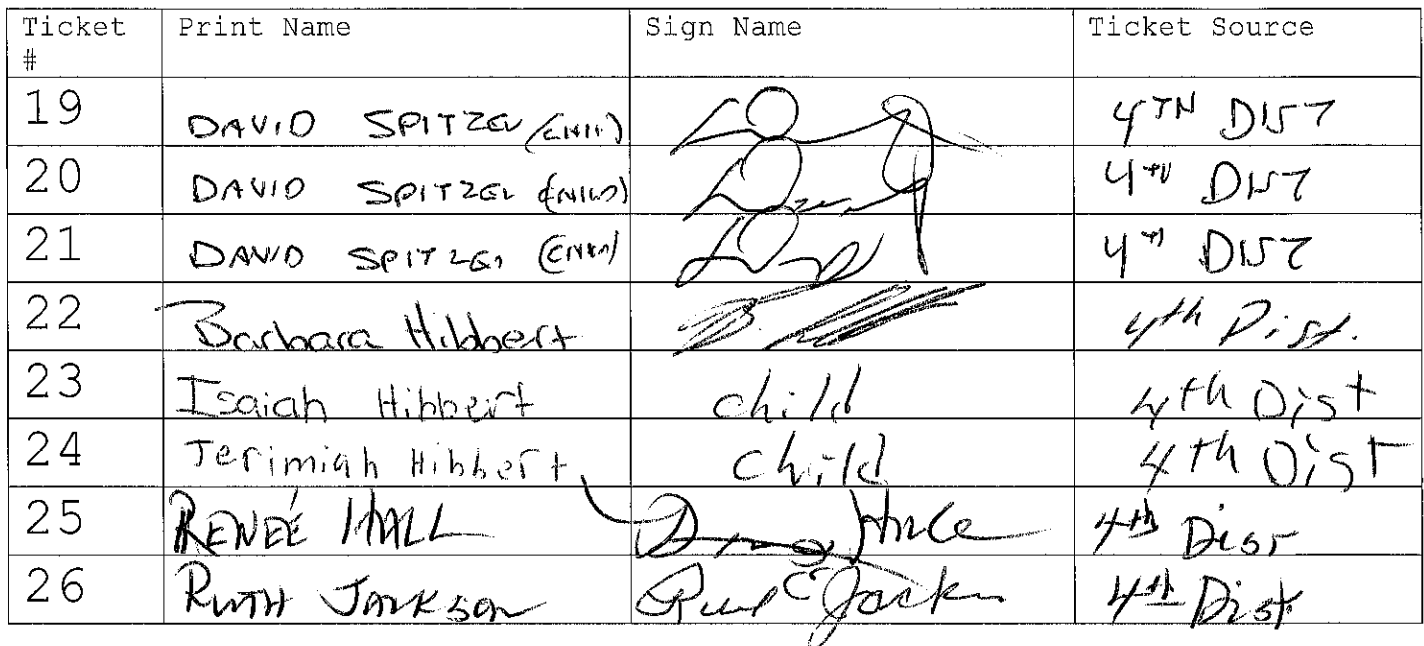 Ticket # Print Name Sign Name Ticket Source
19 DAVID SPITZER 4TH DIST
20 DAVID SPITZER 4TH DIST
21 DAVID SPITZER 4TH DIST
22 Barbara Hibbert B. 4th Dist.
23 Isaiah Hibbert child 4th Dist
24 Jerimiah Hibbert child 4th Dist
25 RENEÉ HALL 4th Dist
26 RUTH JACKSON 4th Dist